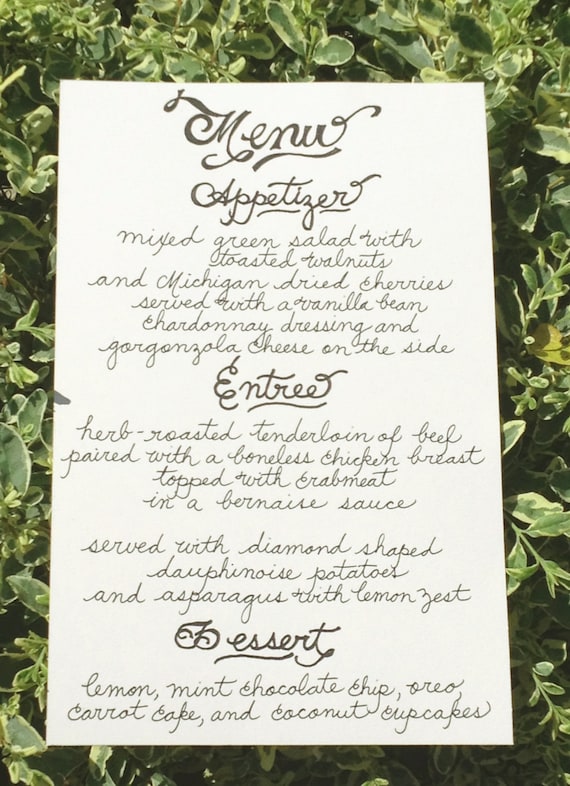 Menu
Appetizer
mixed green salad with
toasted walnuts
and Michigan dried cherries
served with a vanilla bean
chardonnay dressing and
gorgonzola cheese on the side
Entree
herb-roasted tenderloin of beef
paired with a boneless chicken breast
topped with crabmeat
in a bernaise sauce
served with diamond shaped
dauphinoise potatoes
and asparagus with lemon zest
Dessert
lemon, mint chocolate chip, oreo,
carrot cake, and coconut cupcakes